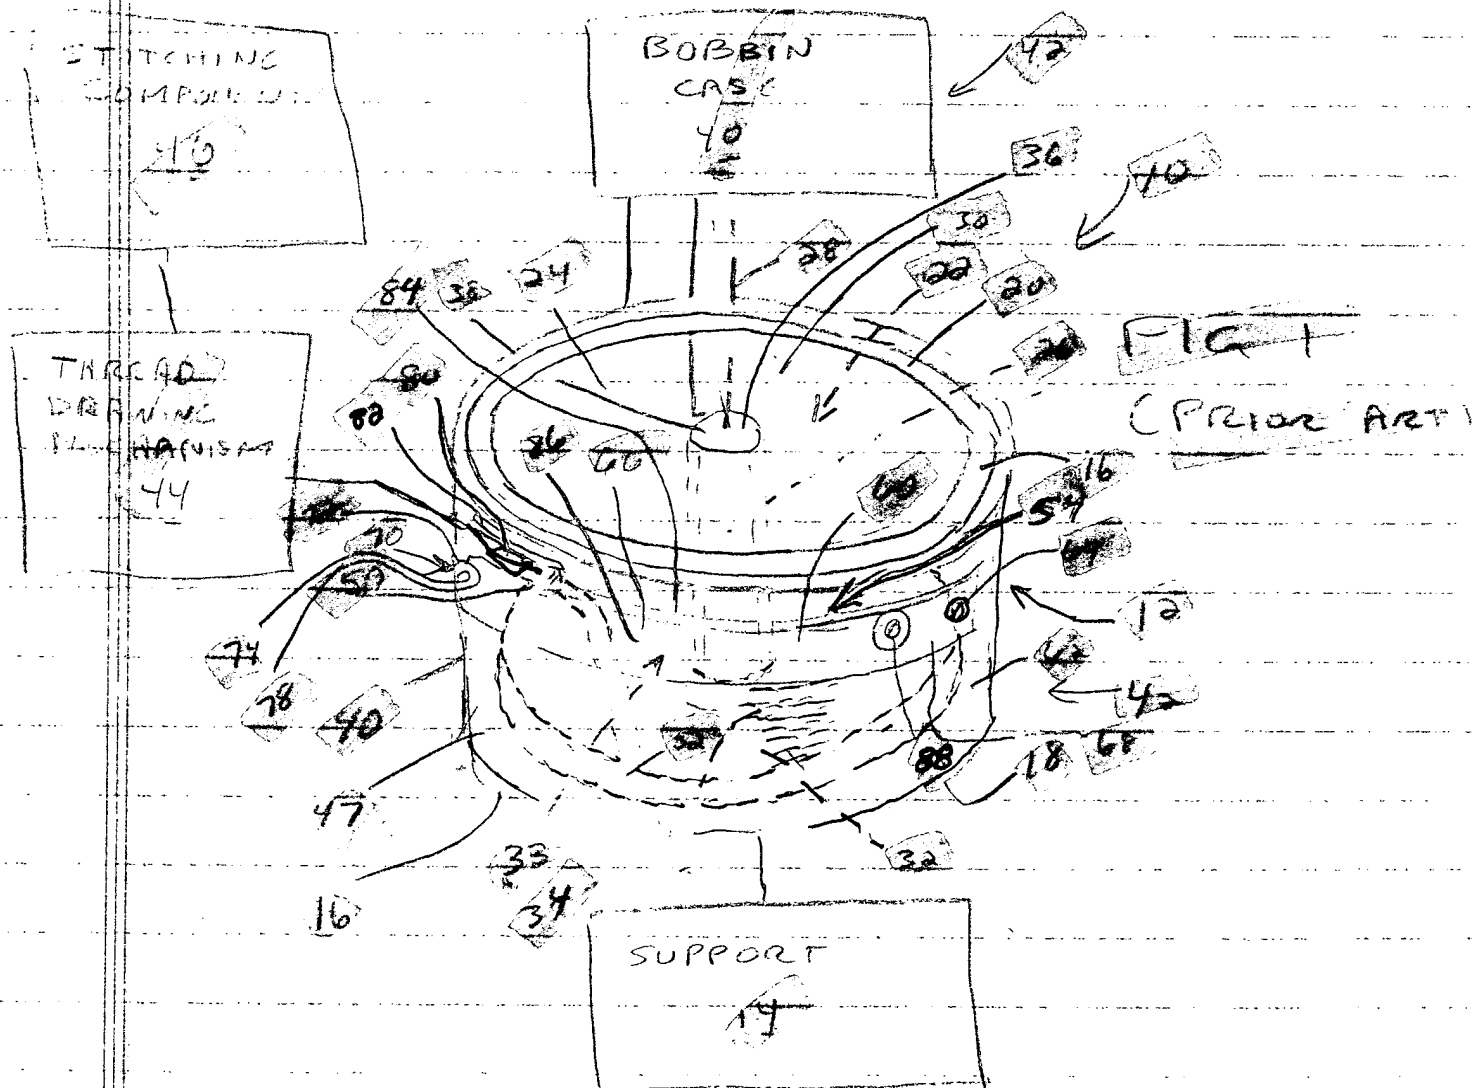 STITCHING
COMPONENT
BOBBIN
CASE
40
42
36
40
30
28
22
20
84
38
24
FIG 1
(PRIOR ART)
THREAD
DRAWING
MECHANISM
44
80
82
86
60
16
54
64
70
50
12
74
78
40
42
52
88
18
68
47
33
34
32
16
SUPPORT
14